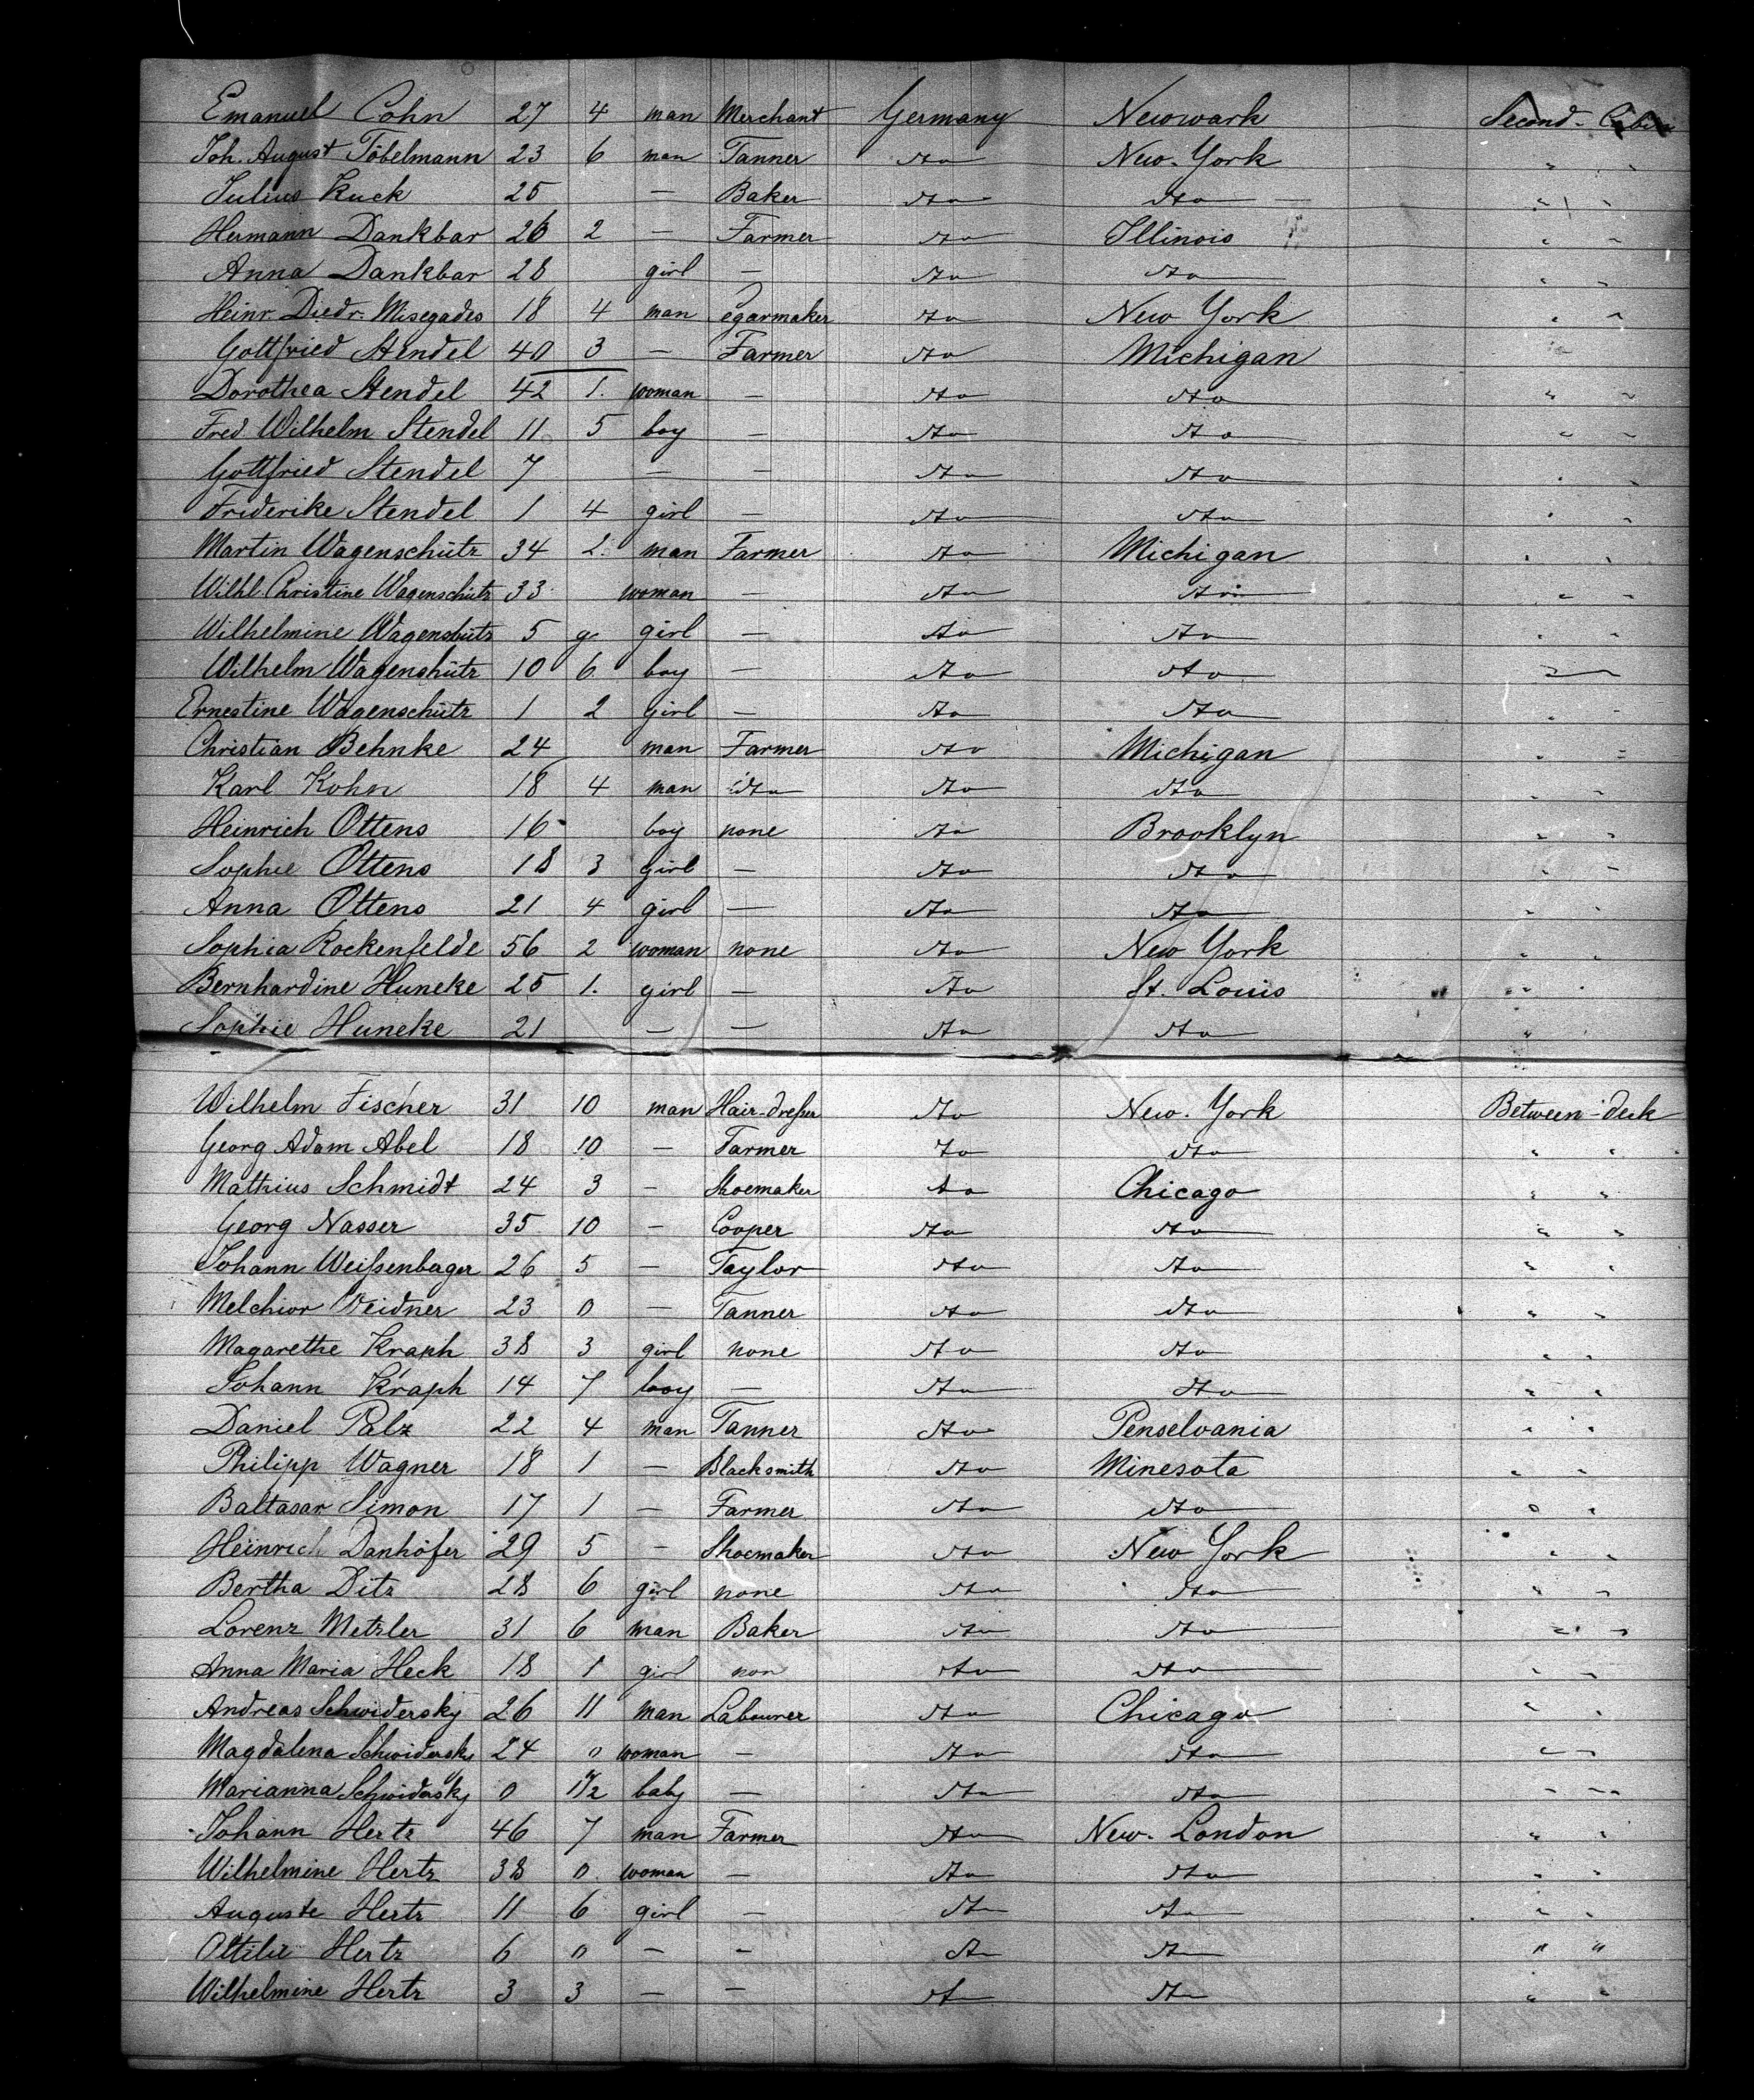 Emanuel Cohn 27 4 man Merchant Germany Newwark Second-Cabin
Joh. August Töbelmann 23 6 man Tanner do New-York " "
Julius Kuck 25 — Baker do do " "
Hermann Dankbar 26 2 — Farmer do Illinois " "
Anna Dankbar 28 girl — do do " "
Heinr. Diedr. Misegades 18 4 man Cegarmaker do New York " "
Gottfried Stendel 40 3 — Farmer do Michigan " "
Dorothea Stendel 42 1. woman — do do " "
Fred Wilhelm Stendel 11 5 boy — do do " "
Gottfried Stendel 7 — — do do " "
Friderike Stendel 1 4 girl — do do " "
Martin Wagenschütz 34 2. man Farmer do Michigan " "
Wilhl. Christine Wagenschütz 33 woman — do do " "
Wilhelmine Wagenshütz 5 9 girl — do do " "
Wilhelm Wagenshütz 10 6 boy — do do " "
Ernestine Wagenschütz 1 2 girl — do do " "
Christian Behnke 24 man Farmer do Michigan " "
Karl Kohn 18 4 man do do do " "
Heinrich Ottens 16 boy none do Brooklyn " "
Sophie Ottens 18 3 girl — do do " "
Anna Ottens 21 4 girl — do do " "
Sophia Rockenfelde 56 2 woman none do New York " "
Bernhardine Huneke 25 1. girl — do St. Louis " "
Sophie Huneke 21 — — do do "
Wilhelm Fischer 31 10 man Hair-dreßer do New-York Between-deck
Georg Adam Abel 18 10 — Farmer do do " "
Mathius Schmidt 24 3 — Shoemaker do Chicago " "
Georg Nasser 35 10 — Cooper do do " "
Johann Weißenbager 26 5 — Taylor do do " "
Melchior Weidner 23 0 — Tanner do do " "
Magarethe Kraph 38 3 girl none do do " "
Johann Kraph 14 7 boy — do do " "
Daniel Palz 22 4 man Tanner do Penselvania " "
Philipp Wagner 18 1 — Blacksmith do Minesota " "
Baltasar Simon 17 1 — Farmer do do " "
Heinrich Danhöfer 29 5 — Shoemaker do New York " "
Bertha Ditz 28 6 girl none do do " "
Lorenz Metzler 31 6 man Baker do do " "
Anna Maria Heck 18 1 girl non do do " "
Andreas Schwidersky 26 11 man Labourer do Chicago " "
Magdalena Schwidersky 24 0 woman — do do " "
Marianna Schwidersky 0 1 1/2 baby — do do " "
Johann Hertz 46 7 man Farmer do New-London " "
Wilhelmine Hertz 38 0. woman — do do " "
Auguste Hertz 11 6 girl — do do " "
Ottilie Hertz 6 0 — — do do " "
Wilhelmine Hertz 3 3 — — do do " "